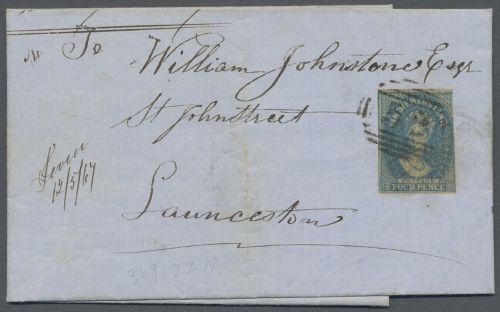 To
William Johnstone Esqr
St John Street
Launceston
12/5/67
POSTAGE
FOUR PENCE
369 22 M